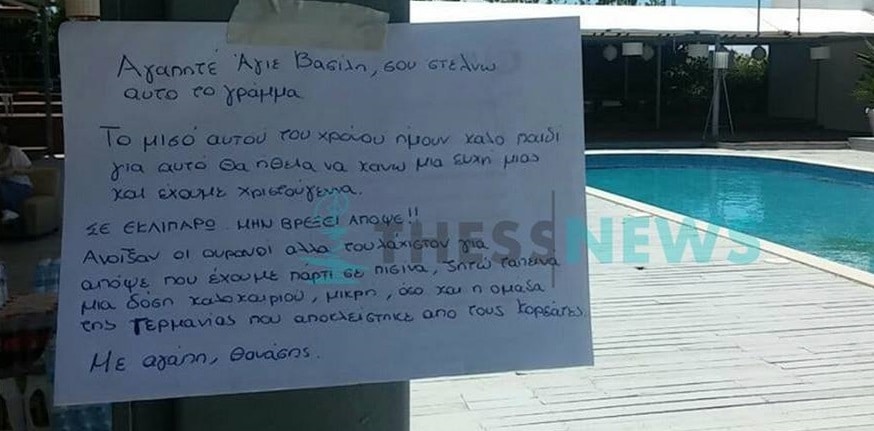 Αγαπητέ Άγιε Βασίλη, σου στέλνω
αυτο το γράμμα
Το μισό αυτού του χρόνου ήμουν καλο παιδί
για αυτό θα ήθελα να κανω μια ευχή μιας
και έχουμε χριστούγεννα.
ΣΕ ΕΚΛΙΠΑΡΩ ΜΗΝ ΒΡΕΞΕΙ ΑΠΟΨΕ!!
Ανοιξαν οι ουρανοί αλλα τουλάχιστον για
απόψε που έχουμε πάρτι σε πισίνα, ζητώ ταπεινα
μια δόση καλοκαιριού, μικρή, όσο και η ομαδα
της Γερμανίας που αποκλείστηκε απο τους Κορεάτες.
Με αγάπη, Θανάσης.
THESSNEWS